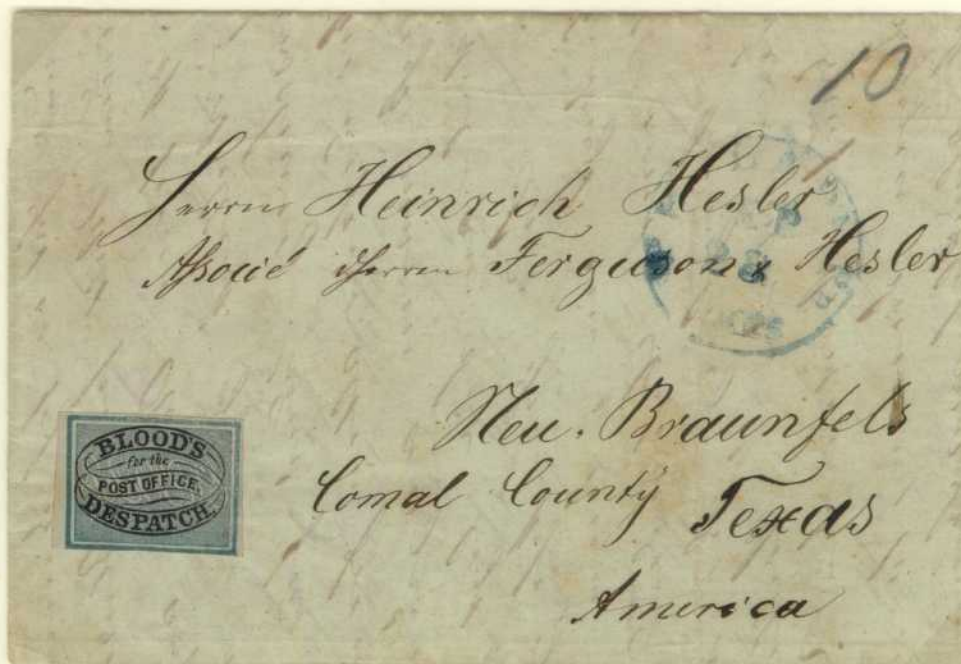 10
Herrn Heinrich Hesler
Associé Herrn Ferguson & Hesler
Neu. Braunfels
Comal County
Texas
America
BLOOD'S
for the
POST OFFICE.
DESPATCH.
28